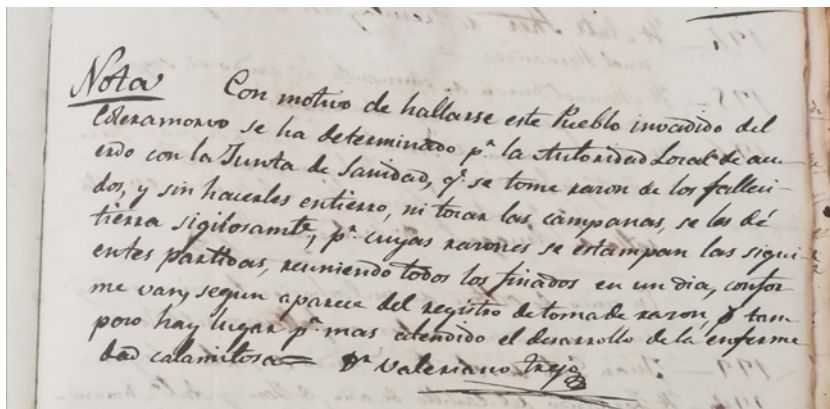 Nota Con motivo de hallarse este Pueblo invadido del
Coleramorvo se ha determinado pr. la Autoridad Local de acu-
erdo con la Junta de Sanidad, qe. se tome razon de los falleci-
dos, y sin hacerles entierro, ni tocar las campanas, se les dé
tierra sigilosamte., pr. cuyas razones se estampan las sigui-
entes partidas, reuniendo todos los finados en un dia, confor
me van y segun aparece del registro de toma de razon, tam
poco hay lugar pa. mas atendido el desarrollo de la enferme
dad calamitosa= Dr. Valeriano Trejo